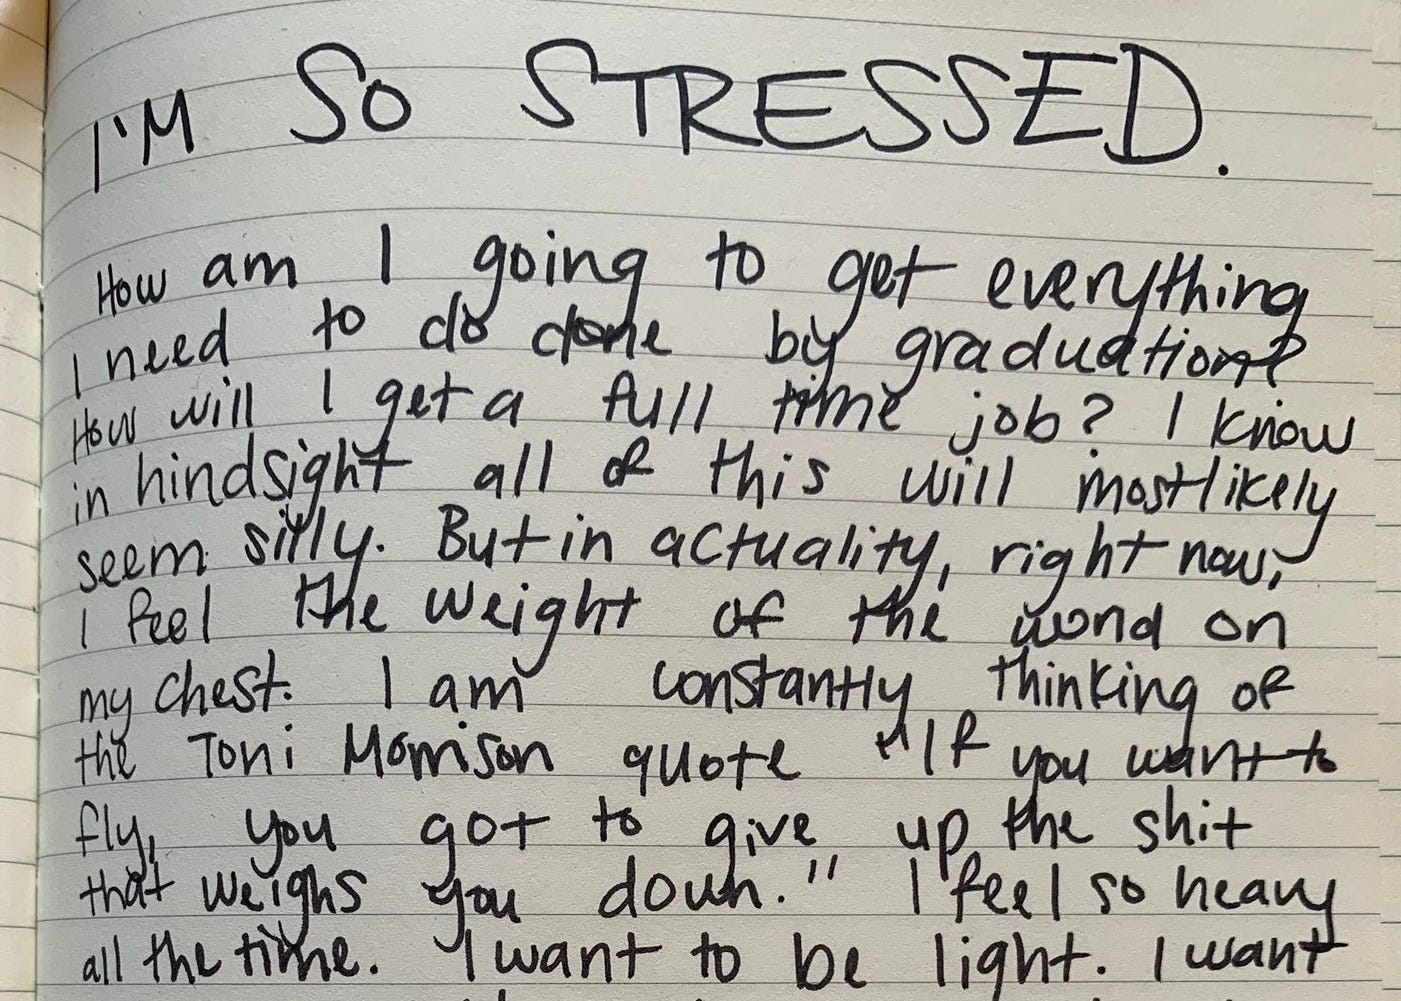 I'M SO STRESSED.
How am I going to get everything
I need to do done by graduation?
How will I get a full time job? I know
in hindsight all of this will mostlikely
seem silly. But in actuality, right now,
I feel the weight of the world on
my chest. I am constantly thinking of
the Toni Morrison quote "If you want to
fly, you got to give up the shit
that weighs you down." I feel so heavy
all the time. I want to be light. I want